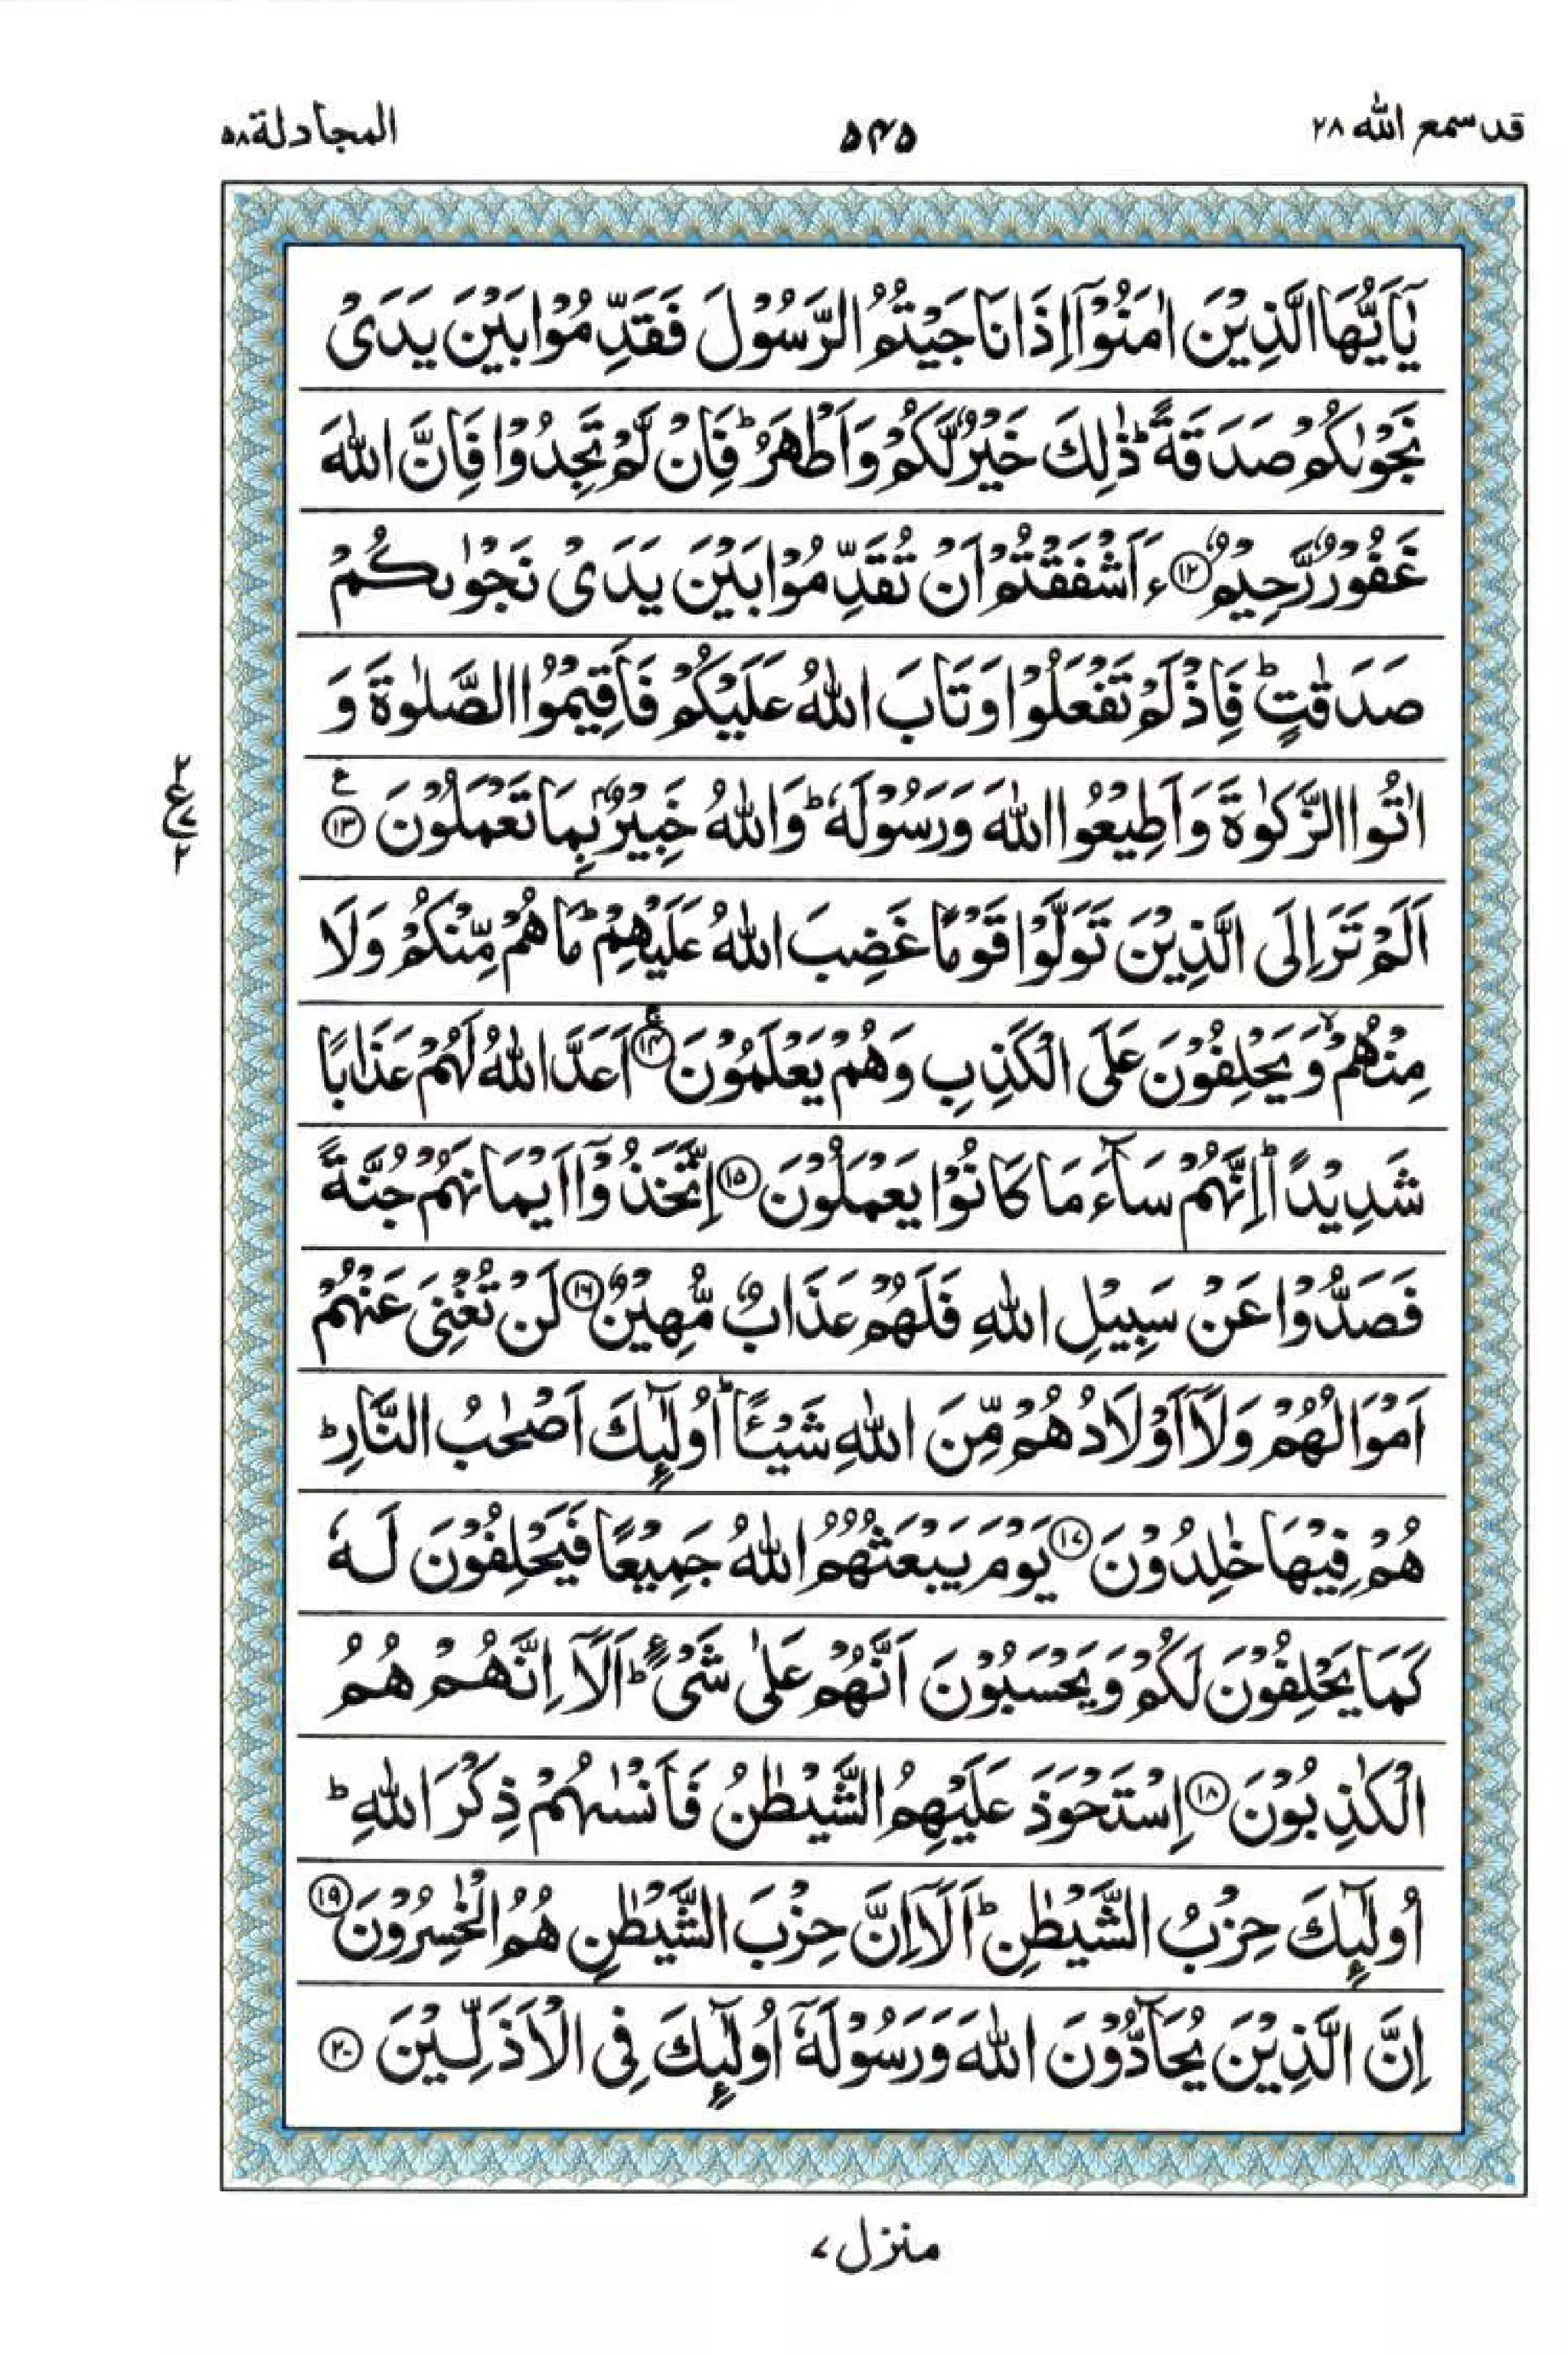 قد سمع الله ٢٨
٥٤٥
المجادلة ٥٨
يٰۤاَيُّهَا الَّذِيْنَ اٰمَنُوْۤا اِذَا نَاجَيْتُمُ الرَّسُوْلَ فَقَدِّمُوْا بَيْنَ يَدَىْ
نَجْوٰىكُمْ صَدَقَةً ؕ ذٰلِكَ خَيْرٌ لَّكُمْ وَاَطْهَرُ ؕ فَاِنْ لَّمْ تَجِدُوْا فَاِنَّ اللّٰهَ
غَفُوْرٌ رَّحِيْمٌ ﴿۱۲﴾ ءَاَشْفَقْتُمْ اَنْ تُقَدِّمُوْا بَيْنَ يَدَىْ نَجْوٰىكُمْ
صَدَقٰتٍ ؕ فَاِذْ لَمْ تَفْعَلُوْا وَتَابَ اللّٰهُ عَلَيْكُمْ فَاَقِيْمُوا الصَّلٰوةَ وَ
اٰتُوا الزَّكٰوةَ وَاَطِيْعُوا اللّٰهَ وَرَسُوْلَهٗ ؕ وَاللّٰهُ خَبِيْرٌۢ بِمَا تَعْمَلُوْنَ ﴿۱۳﴾ ع
٢ ع ٧ ٢
اَلَمْ تَرَ اِلَى الَّذِيْنَ تَوَلَّوْا قَوْمًا غَضِبَ اللّٰهُ عَلَيْهِمْ ؕ مَا هُمْ مِّنْكُمْ وَلَا
مِنْهُمْ ۙ وَيَحْلِفُوْنَ عَلَى الْكَذِبِ وَهُمْ يَعْلَمُوْنَ ﴿۱۴﴾ اَعَدَّ اللّٰهُ لَهُمْ عَذَابًا
شَدِيْدًا ؕ اِنَّهُمْ سَآءَ مَا كَانُوْا يَعْمَلُوْنَ ﴿۱۵﴾ اِتَّخَذُوْۤا اَيْمَانَهُمْ جُنَّةً
فَصَدُّوْا عَنْ سَبِيْلِ اللّٰهِ فَلَهُمْ عَذَابٌ مُّهِيْنٌ ﴿۱۶﴾ لَنْ تُغْنِىَ عَنْهُمْ
اَمْوَالُهُمْ وَلَاۤ اَوْلَادُهُمْ مِّنَ اللّٰهِ شَيْـًٔا ؕ اُولٰٓئِكَ اَصْحٰبُ النَّارِ ؕ
هُمْ فِيْهَا خٰلِدُوْنَ ﴿۱۷﴾ يَوْمَ يَبْعَثُهُمُ اللّٰهُ جَمِيْعًا فَيَحْلِفُوْنَ لَهٗ
كَمَا يَحْلِفُوْنَ لَكُمْ وَيَحْسَبُوْنَ اَنَّهُمْ عَلٰى شَىْءٍ ؕ اَلَاۤ اِنَّهُمْ هُمُ
الْكٰذِبُوْنَ ﴿۱۸﴾ اِسْتَحْوَذَ عَلَيْهِمُ الشَّيْطٰنُ فَاَنْسٰىهُمْ ذِكْرَ اللّٰهِ ؕ
اُولٰٓئِكَ حِزْبُ الشَّيْطٰنِ ؕ اَلَاۤ اِنَّ حِزْبَ الشَّيْطٰنِ هُمُ الْخٰسِرُوْنَ ﴿۱۹﴾
اِنَّ الَّذِيْنَ يُحَآدُّوْنَ اللّٰهَ وَرَسُوْلَهٗۤ اُولٰٓئِكَ فِى الْاَذَلِّيْنَ ﴿۲۰﴾
منزل ٧